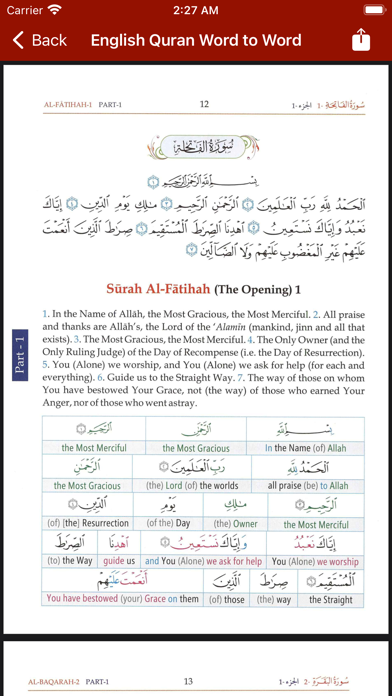 Carrier 2:27 AM
Back English Quran Word to Word
AL-FĀTIHAH-1 PART-1 12 سُورَةُ الفَاتِحَة -1 الجزء-1
سُورَةُ الفَاتِحَةِ
بِسْمِ اللَّهِ الرَّحْمَٰنِ الرَّحِيمِ ١
الْحَمْدُ لِلَّهِ رَبِّ الْعَالَمِينَ ٢ الرَّحْمَٰنِ الرَّحِيمِ ٣ مَالِكِ يَوْمِ الدِّينِ ٤ إِيَّاكَ
نَعْبُدُ وَإِيَّاكَ نَسْتَعِينُ ٥ اهْدِنَا الصِّرَاطَ الْمُسْتَقِيمَ ٦ صِرَاطَ الَّذِينَ أَنْعَمْتَ
عَلَيْهِمْ غَيْرِ الْمَغْضُوبِ عَلَيْهِمْ وَلَا الضَّالِّينَ ٧
Sūrah Al-Fātihah (The Opening) 1
1. In the Name of Allāh, the Most Gracious, the Most Merciful. 2. All praise
and thanks are Allāh's, the Lord of the 'Alamīn (mankind, jinn and all that
exists). 3. The Most Gracious, the Most Merciful. 4. The Only Owner (and the
Only Ruling Judge) of the Day of Recompense (i.e. the Day of Resurrection).
5. You (Alone) we worship, and You (Alone) we ask for help (for each and
everything). 6. Guide us to the Straight Way. 7. The way of those on whom
You have bestowed Your Grace, not (the way) of those who earned Your
Anger, nor of those who went astray.
Part - 1
الرَّحِيمِ ١ الرَّحْمَٰنِ بِسْمِ اللَّهِ
the Most Merciful the Most Gracious In the Name (of) Allah
الرَّحْمَٰنِ رَبِّ الْعَالَمِينَ ٢ الْحَمْدُ لِلَّهِ
the Most Gracious (the) Lord (of) the worlds all praise (be) to Allah
الدِّينِ ٤ يَوْمِ مَالِكِ الرَّحِيمِ ٣
(of) [the] Resurrection (of the) Day (the) Owner the Most Merciful
الصِّرَاطَ اهْدِنَا وَإِيَّاكَ نَسْتَعِينُ ٥ إِيَّاكَ نَعْبُدُ
(to) the Way guide us and You (Alone) we ask for help You (Alone) we worship
أَنْعَمْتَ عَلَيْهِمْ الَّذِينَ صِرَاطَ الْمُسْتَقِيمَ ٦
You have bestowed (your) Grace on them (of) those (the) way the Straight
AL-BAQARAH-2 PART-1 13 سُورَةُ البَقَرَةِ -2 الجزء-1